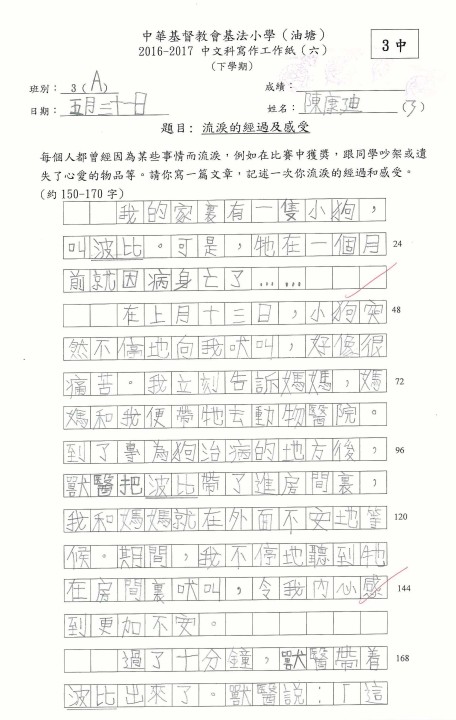 中華基督教會基法小學（油塘）
2016-2017 中文科寫作工作紙（六）
（下學期）
3 中
班別： 3（A）
成績：
日期： 五月三十一日
姓名： 陳康廸 (3)
題目： 流淚的經過及感受
每個人都曾經因為某些事情而流淚，例如在比賽中獲獎，跟同學吵架或遺
失了心愛的物品等。請你寫一篇文章，記述一次你流淚的經過和感受。
（約 150-170 字）
我的家裏有一隻小狗，
叫波比。可是，牠在一個月 24
前就因病身亡了……
在上月十三日，小狗突 48
然不停地向我吠叫，好像很
痛苦。我立刻告訴媽媽，媽 72
媽和我便帶牠去動物醫院。
到了專為狗治病的地方後， 96
獸醫把波比帶了進房間裏，
我和媽媽就在外面不安地等 120
候。期間，我不停地聽到牠
在房間裏吠叫，令我內心感 144
到更加不安。
過了十分鐘，獸醫帶着 168
波比出來了。獸醫說：「這